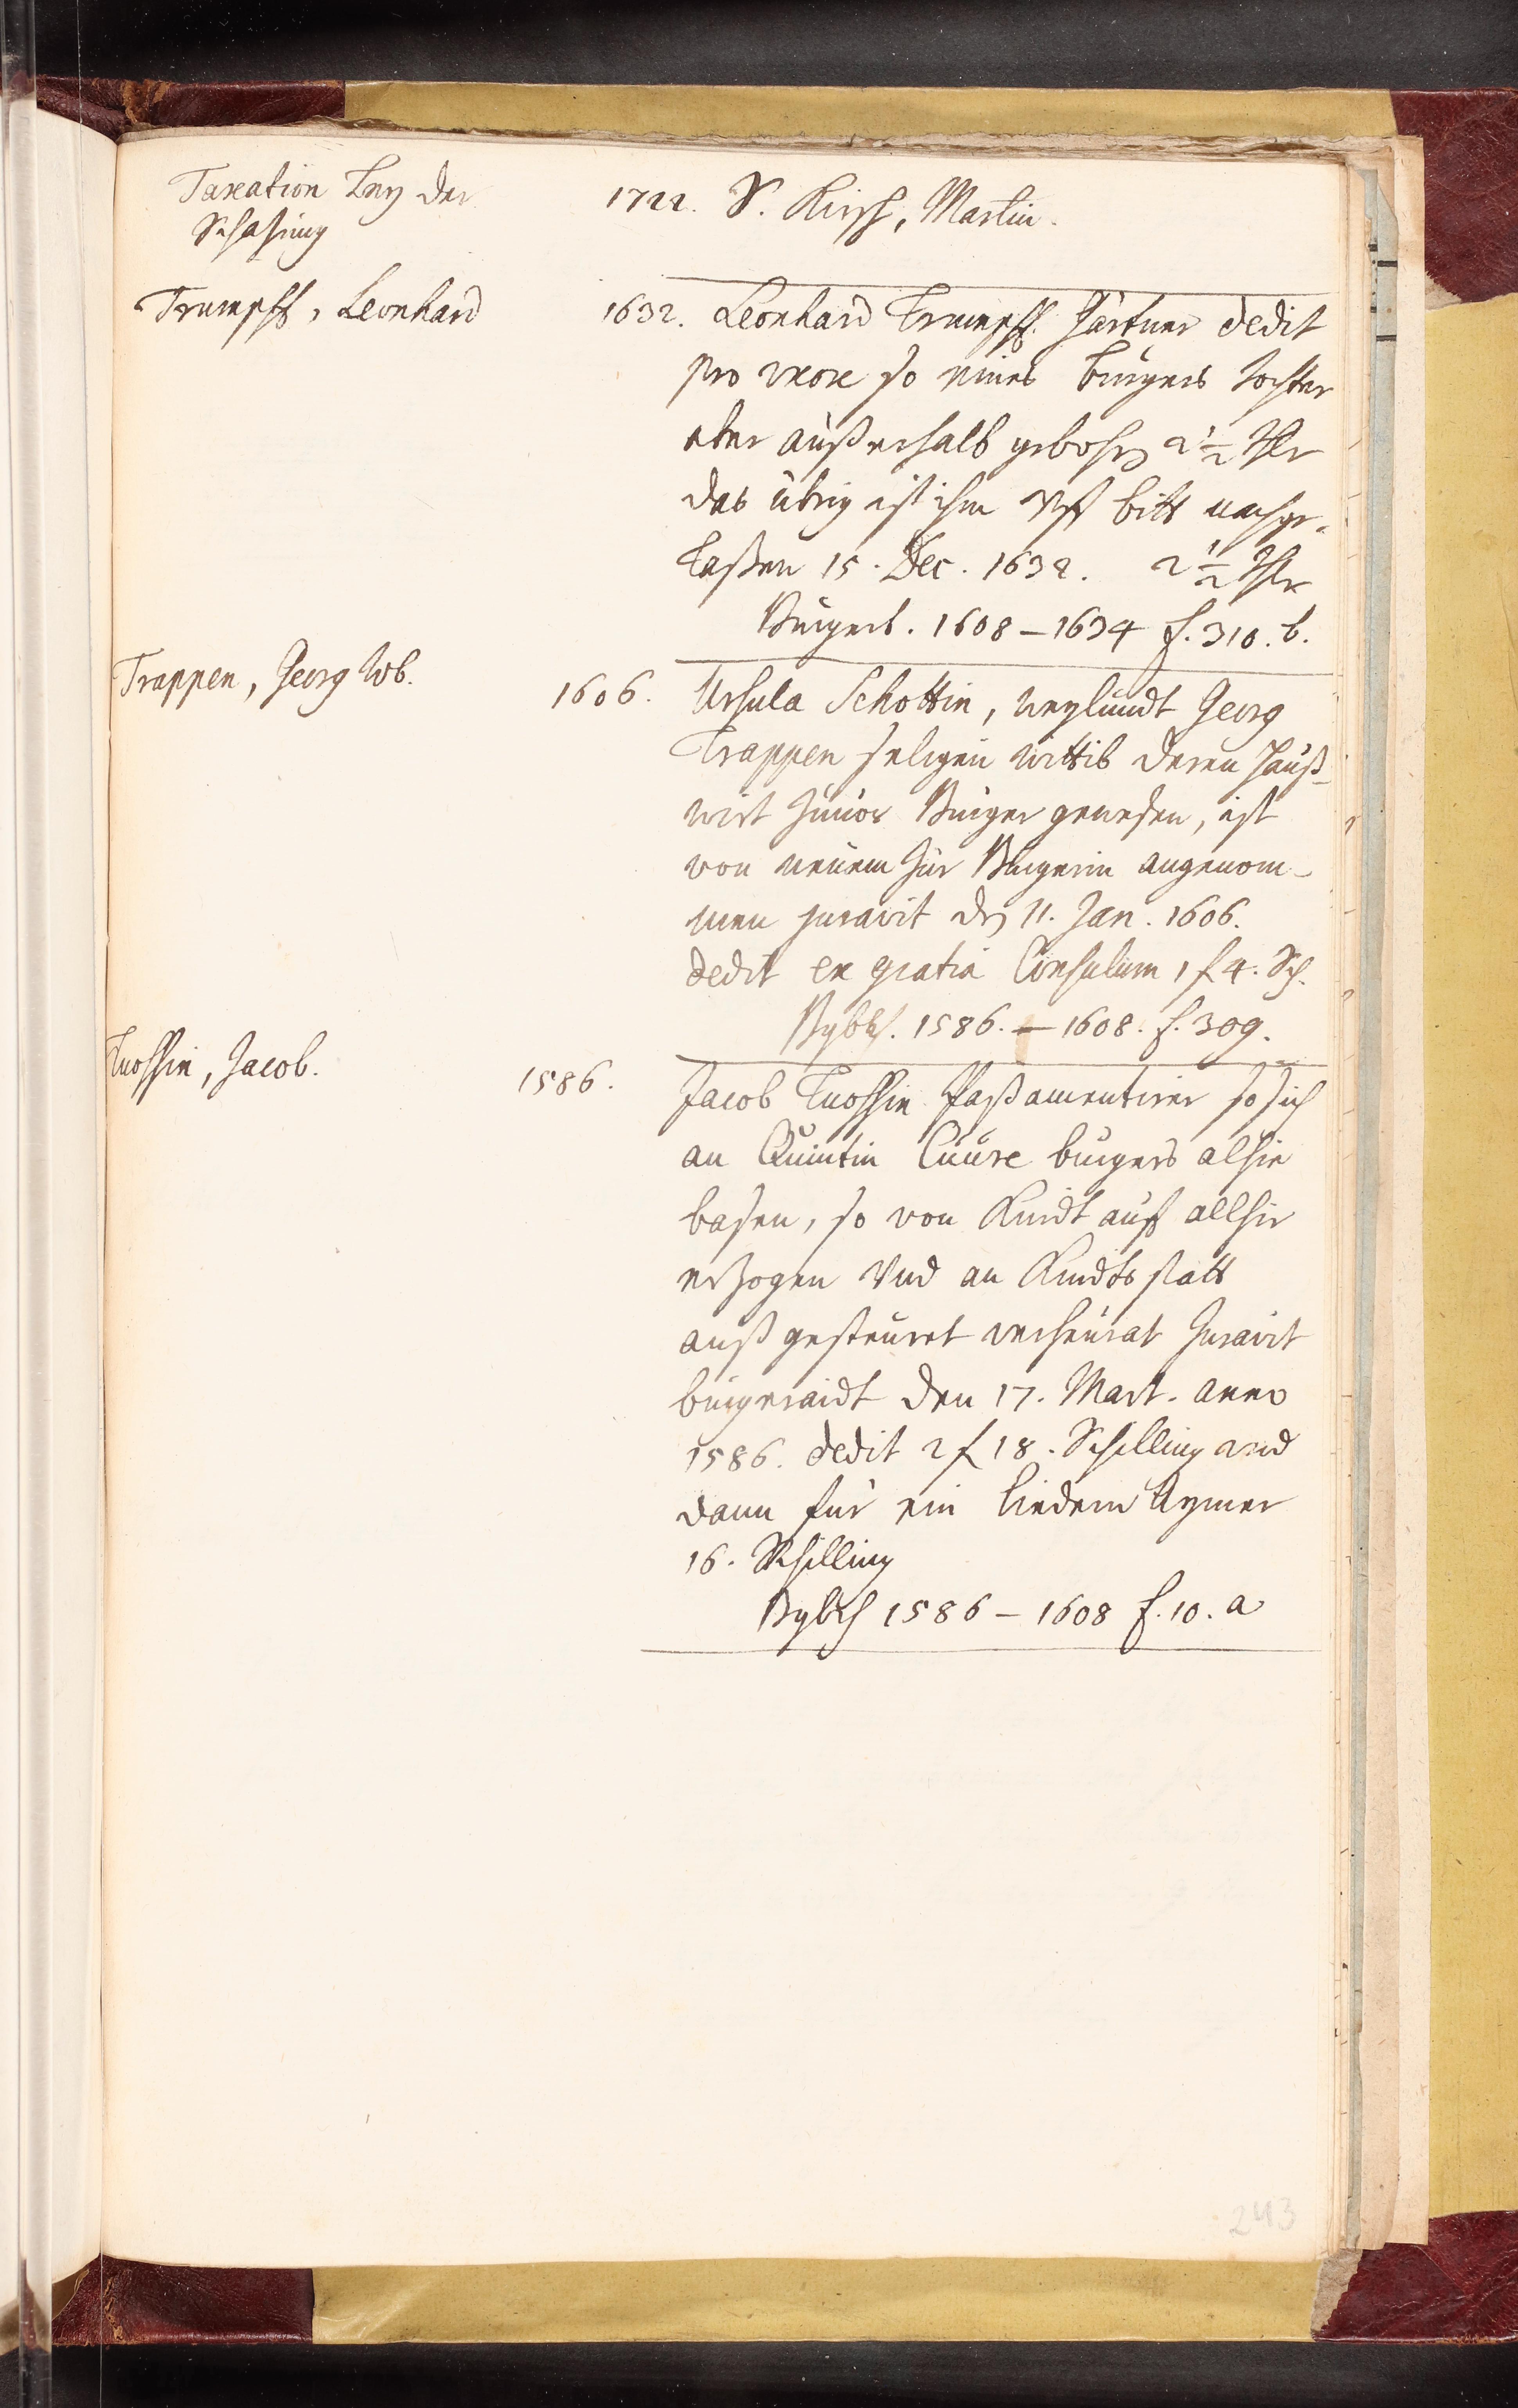 Taxation bey der
Schatzung
1722. S. Kirsch, Martin.
Trumpff, Leonhard
1632. Leonhard Trumpff. Gärtner dedit
pro uxore so eines burgers tochter
aber außerhalb gebohrn 2 1/2 Thlr
das übrig ist ihm Vff bitt nachge-
laßen 15. Dec. 1632. 2 1/2 Thlr
Burgerb. 1608 – 1634 f. 310. b.
Trappen, Georg Wb.
1606. Ursula Schottin, weylundt Georg
Trappen seligen wittib deren Hauß-
wirt zuuor Burger gewesen, ist
von neuem zur Burgerin angenom-
men juravit den 11. Jan. 1606.
dedit ex gratia Consulum 1 f 4. Sch.
Bgbch. 1586. – 1608. f. 309.
Tuossin, Jacob.
1586. Jacob Tuossin Paßamentirer so sich
an Quintin Cuure burgers alhie
basen, so von Kindt auff allhir
erzogen Vnd an Kindts statt
auß gesteuret verheurat Juravit
burgeraidt den 17. Mart. anno
1586. dedit 2 f 18. Schilling und
dann für ein liedern Aymer
16. Schilling
Bgbch 1586 – 1608 f. 10. a
243